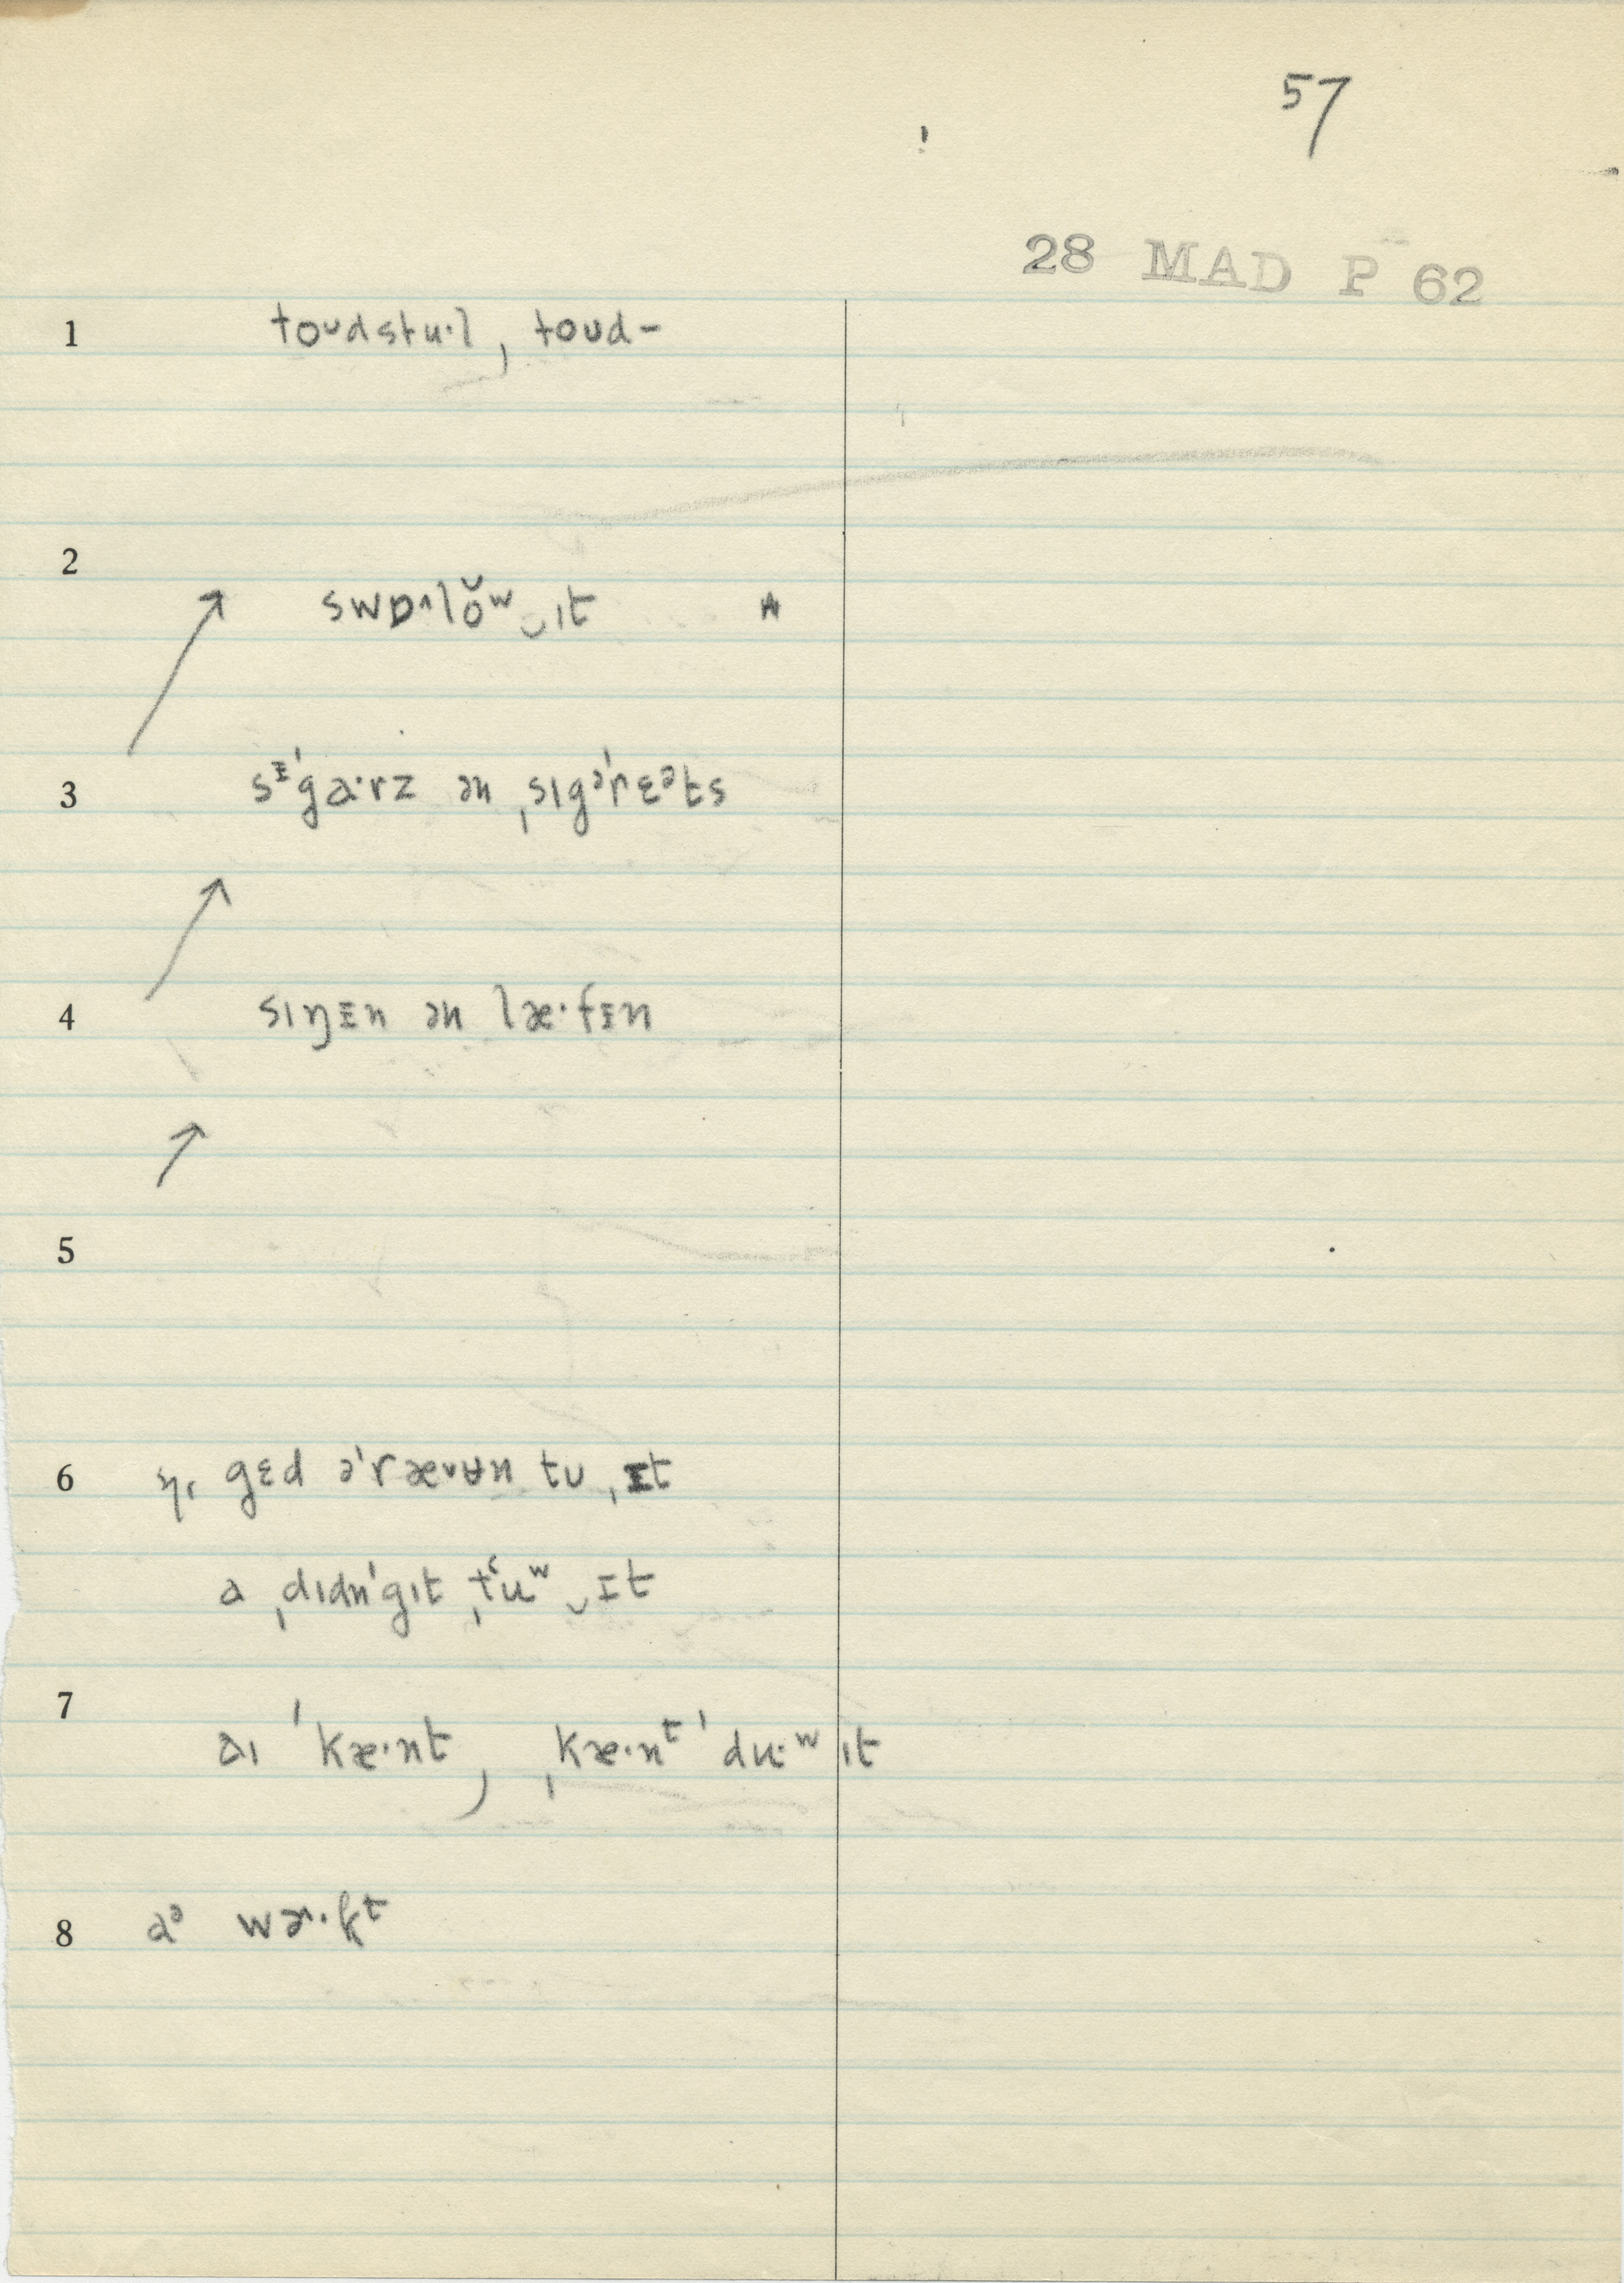 57
28 MAD P 62
1 toʊdstu·l, toʊd-
2
swɒ˄·lŏʷ‿ɪt
3 sᵻˈgɑ·rz ən ˌsɪgəˈrɛᵊts
4 sɪŋᵻn ən læ·fᵻn
5
6 gɛd əˈræ˅ʉn tʊ ˌᵻt
a ˌdɪdnˈgɪt ˌtʻuʷ‿ᵻt
7
aɪ ˈkæ·nt, ˌkæ·nᵗ ˈdu·ʷ ɪt
8 aᵊ wɚ˄·kᵗ